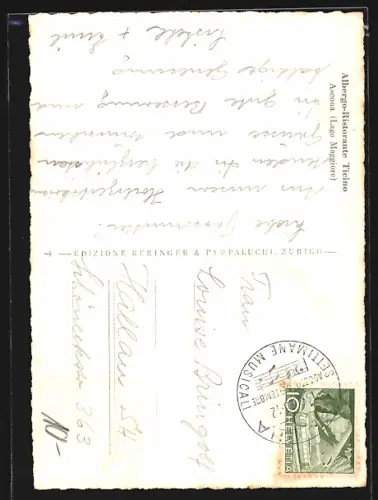 Albergo-Ristorante Ticino
Ascona (Lago Maggiore)
Liebe Grossmutter!
Aus unseren
senden Dir die herzlichsten
Grüsse und wünschen
Dir gute Besserung und
baldige Genesung
+ Emil
EDIZIONE BERINGER & PAMPALUCHI, ZURIGO
Frau
Louise Bringolf
Hallau SH
363
10-
SETTIMANE MUSICALI
SETTEMBRE
10
HELVETIA